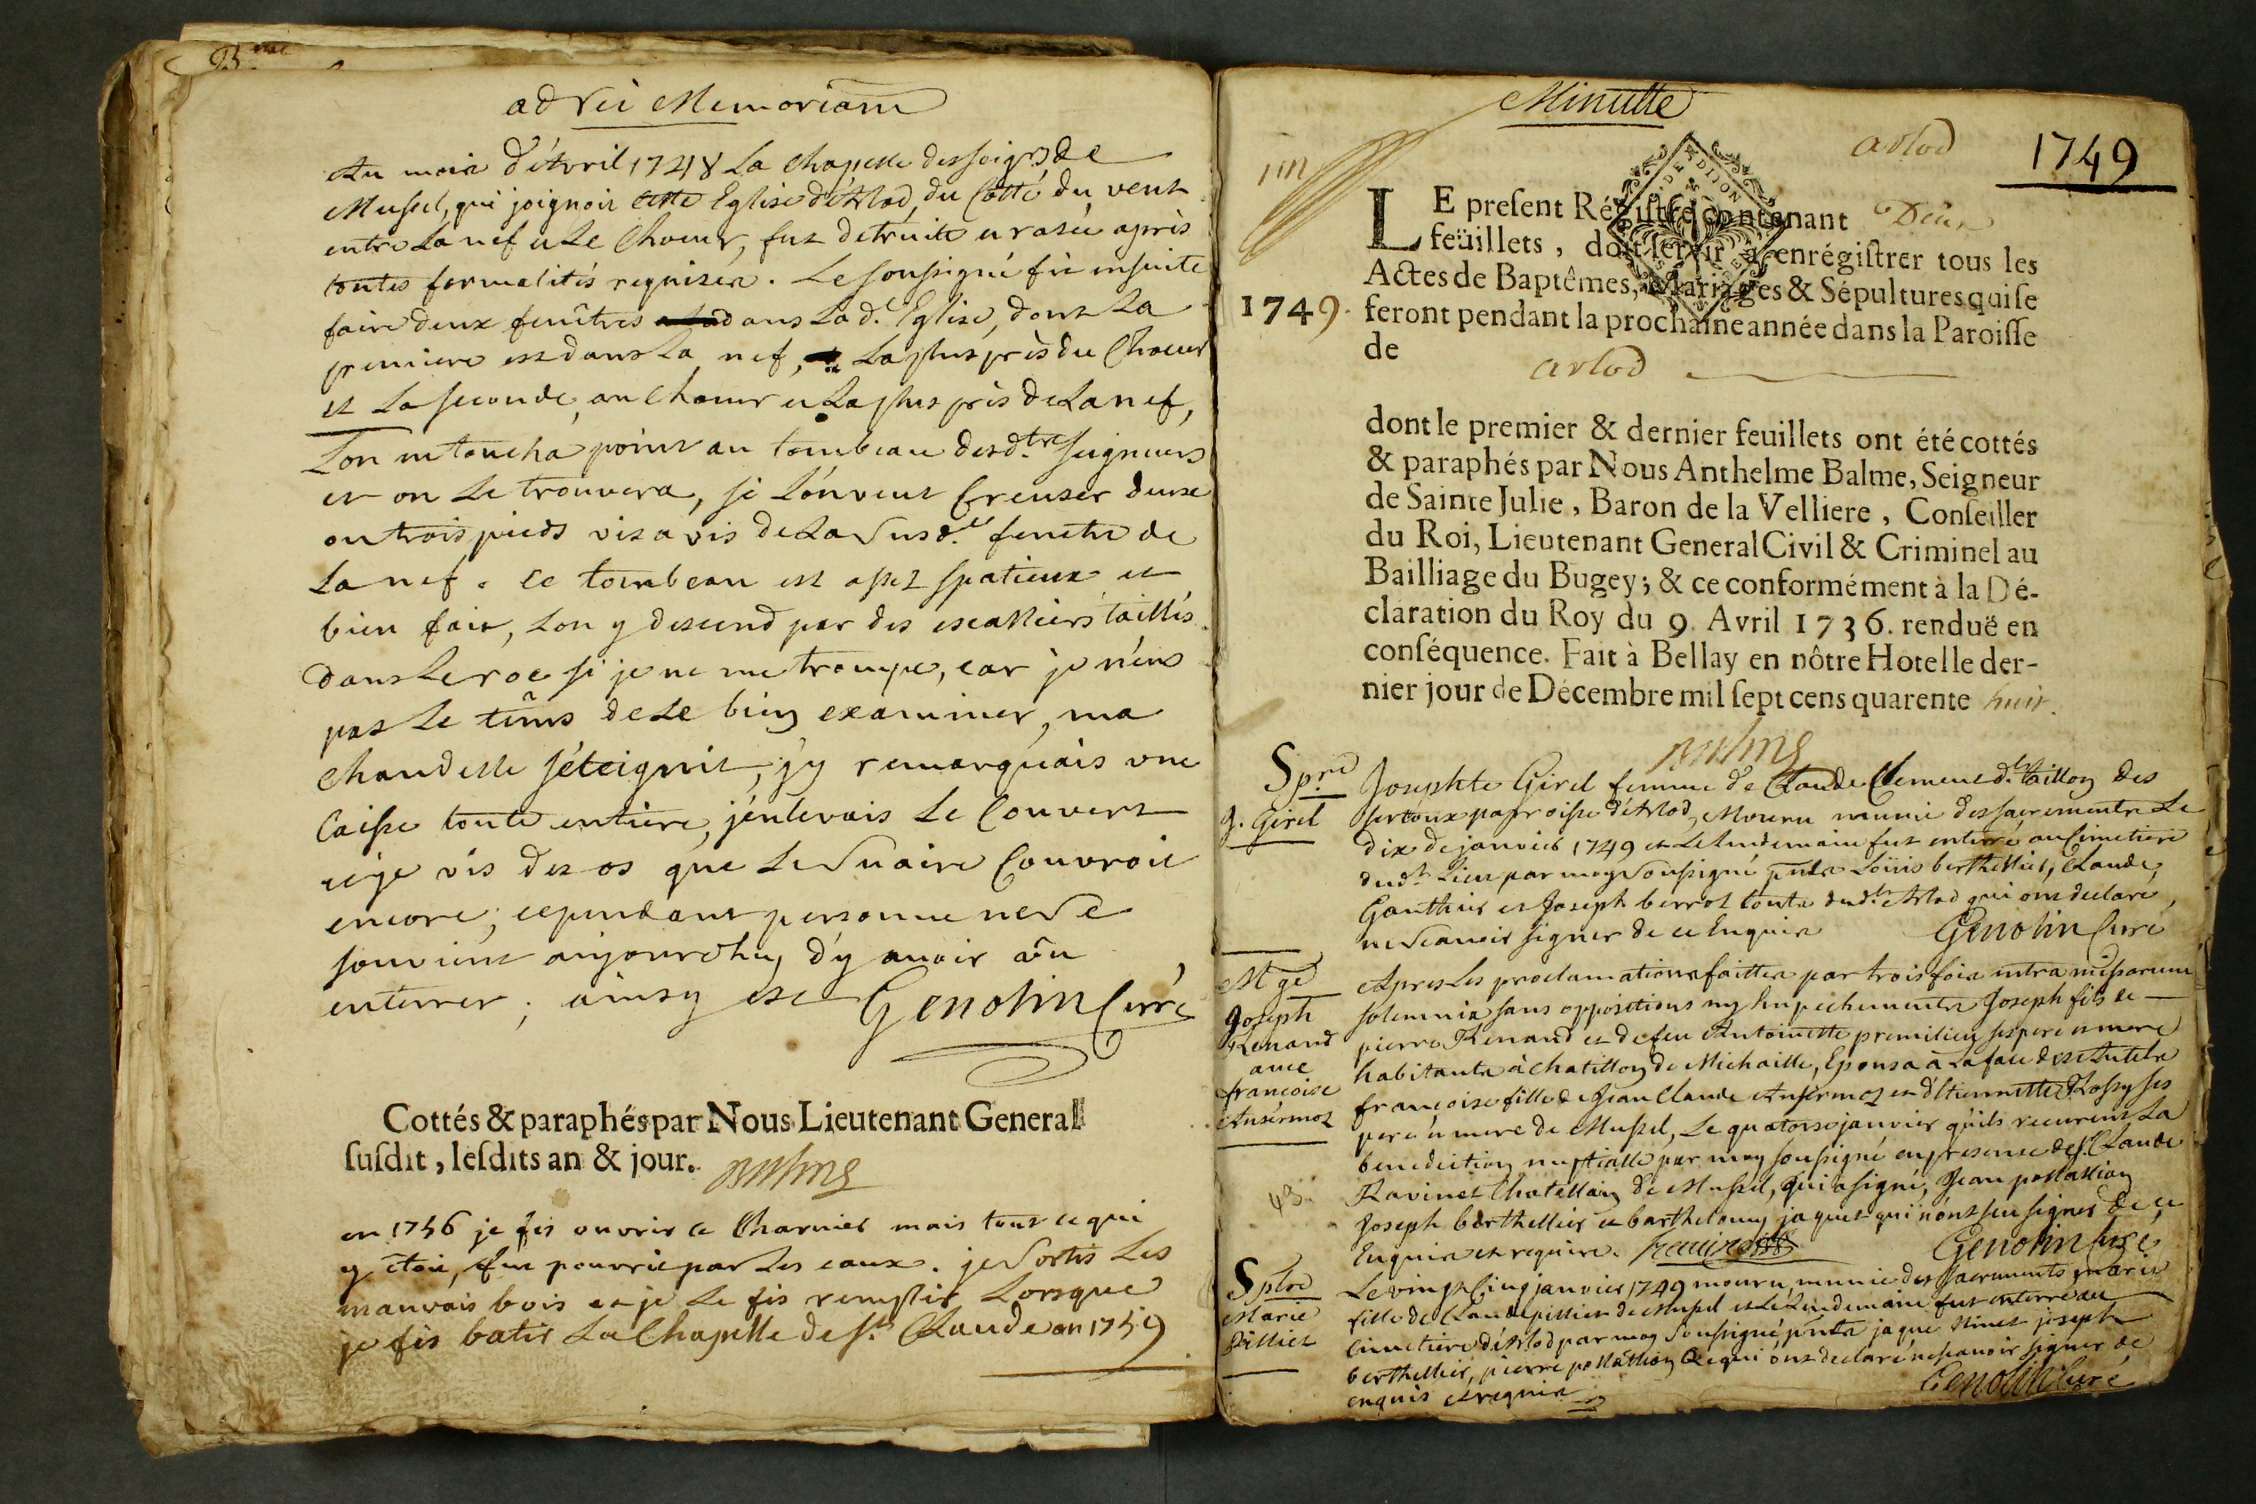 ad rei Memoriam
Au mois d'Avril 1748 La Chapelle des seigrs de
Mussel, qui joignoit cette Eglise d'Arlod, du Cotté du vent
entre La nef et Le Choeur, fut detruite et rasée après
toutes formalités requises. Le soussigné fit ensuite
faire deux fenêtres dans Lad. Eglise, dont La
premiere est dans La nef, La plus près du Choeur
et La seconde au Choeur et La plus près de La nef,
L'on ne toucha point au tombeau desd. seigneurs
et on Le trouvera, si L'on veut Creuser deux
ou trois pieds vis a vis de La susd.e fenetre de
La nef. Ce tombeau est assez spatieux et
bien fait, Lon y descend par des escalliers taillés
dans Le roc si je ne me trompe, car je n'eus
pas Le tems de Le bien examiner, ma
Chandelle s'éteignit, j'y remarquais une
Caisse toute entiere, j'enlevais Le Couvert
et je vis des os que Le Suaire Couvroit
encore; cependant personne ne se
souvient aujourdhuy d'y avoir vû
enterrer; ainsy est Genolin Curé
Cottés & paraphés par Nous Lieutenant General
susdit, lesdits an & jour.
en 1756 je fis ouvrir ce Charnier mais tout ce qui
y étoit, fut pourrit par Les eaux. je sortis Les
mauvais bois et je Le fis remplir Lorsque
je fis batir La Chapelle de St. Claude en 1759
Minutte
arlod
1749
LE present Régistre contenant Deux
feüillets, doit servir à enrégistrer tous les
Actes de Baptêmes, Mariages & Sépultures qui se
1749. feront pendant la prochaine année dans la Paroisse
de arlod
dont le premier & dernier feuillets ont été cottés
& paraphés par Nous Anthelme Balme, Seigneur
de Sainte Julie, Baron de la Velliere, Conseiller
du Roi, Lieutenant General Civil & Criminel au
Bailliage du Bugey; & ce conformément à la Dé-
claration du Roy du 9. Avril 1736. renduë en
conséquence. Fait à Bellay en nôtre Hotel le der-
nier jour de Décembre mil sept cens quarente huit.
J. Girel
Josephte Girel femme de Claude Clement des
parroisse d'Arlod, Mourut munie des sacrements Le
dix de janvier 1749 et Le Lendemain fut enterré au Cimetiere
dud. Lieu par moy soussigné Loüis berthellier, Claude
Gauthier et Joseph berrot touts dud. Arlod qui ont declaré
ne scavoir signer de ce Enquis Genolin Curé
Mge
Joseph
Renand
avec
francoise
Ansermoz
Apres Les proclamations faittes par trois fois intra missarum
solemnia sans oppositions ny Empechements Joseph fils de
pierre Renand et de feu Antoinette ses pere et mere
habitants à Chatillon de Michaille, Epousa à La face des Autels
francoise fille de Jean Claude Ansermoz et d'Etiennette Rossy ses
pere et mere de Mussel, Le quatorse janvier qu'ils recurent La
benediction nuptialle par moy soussigné en presence de Sr. Claude
Ravinet Chatellain de Mussel, qui a signé, Jean
Joseph berthellier et barthelemy jaquet qui n'ont sçu signer de ce
Enquis et requis. Genolin Curé
Spltre
Marie
Pillier
Le vingt Cinq janvier 1749 mourut munie des sacrements Marie
fille de Claude pillier de Mussel et Le Lendemain fut enterré au
Cimetiere d'Arlod par moy soussigné jaque joseph
berthellier, pierre qui ont declaré ne scavoir signer de
enquis et requis Genolin Curé